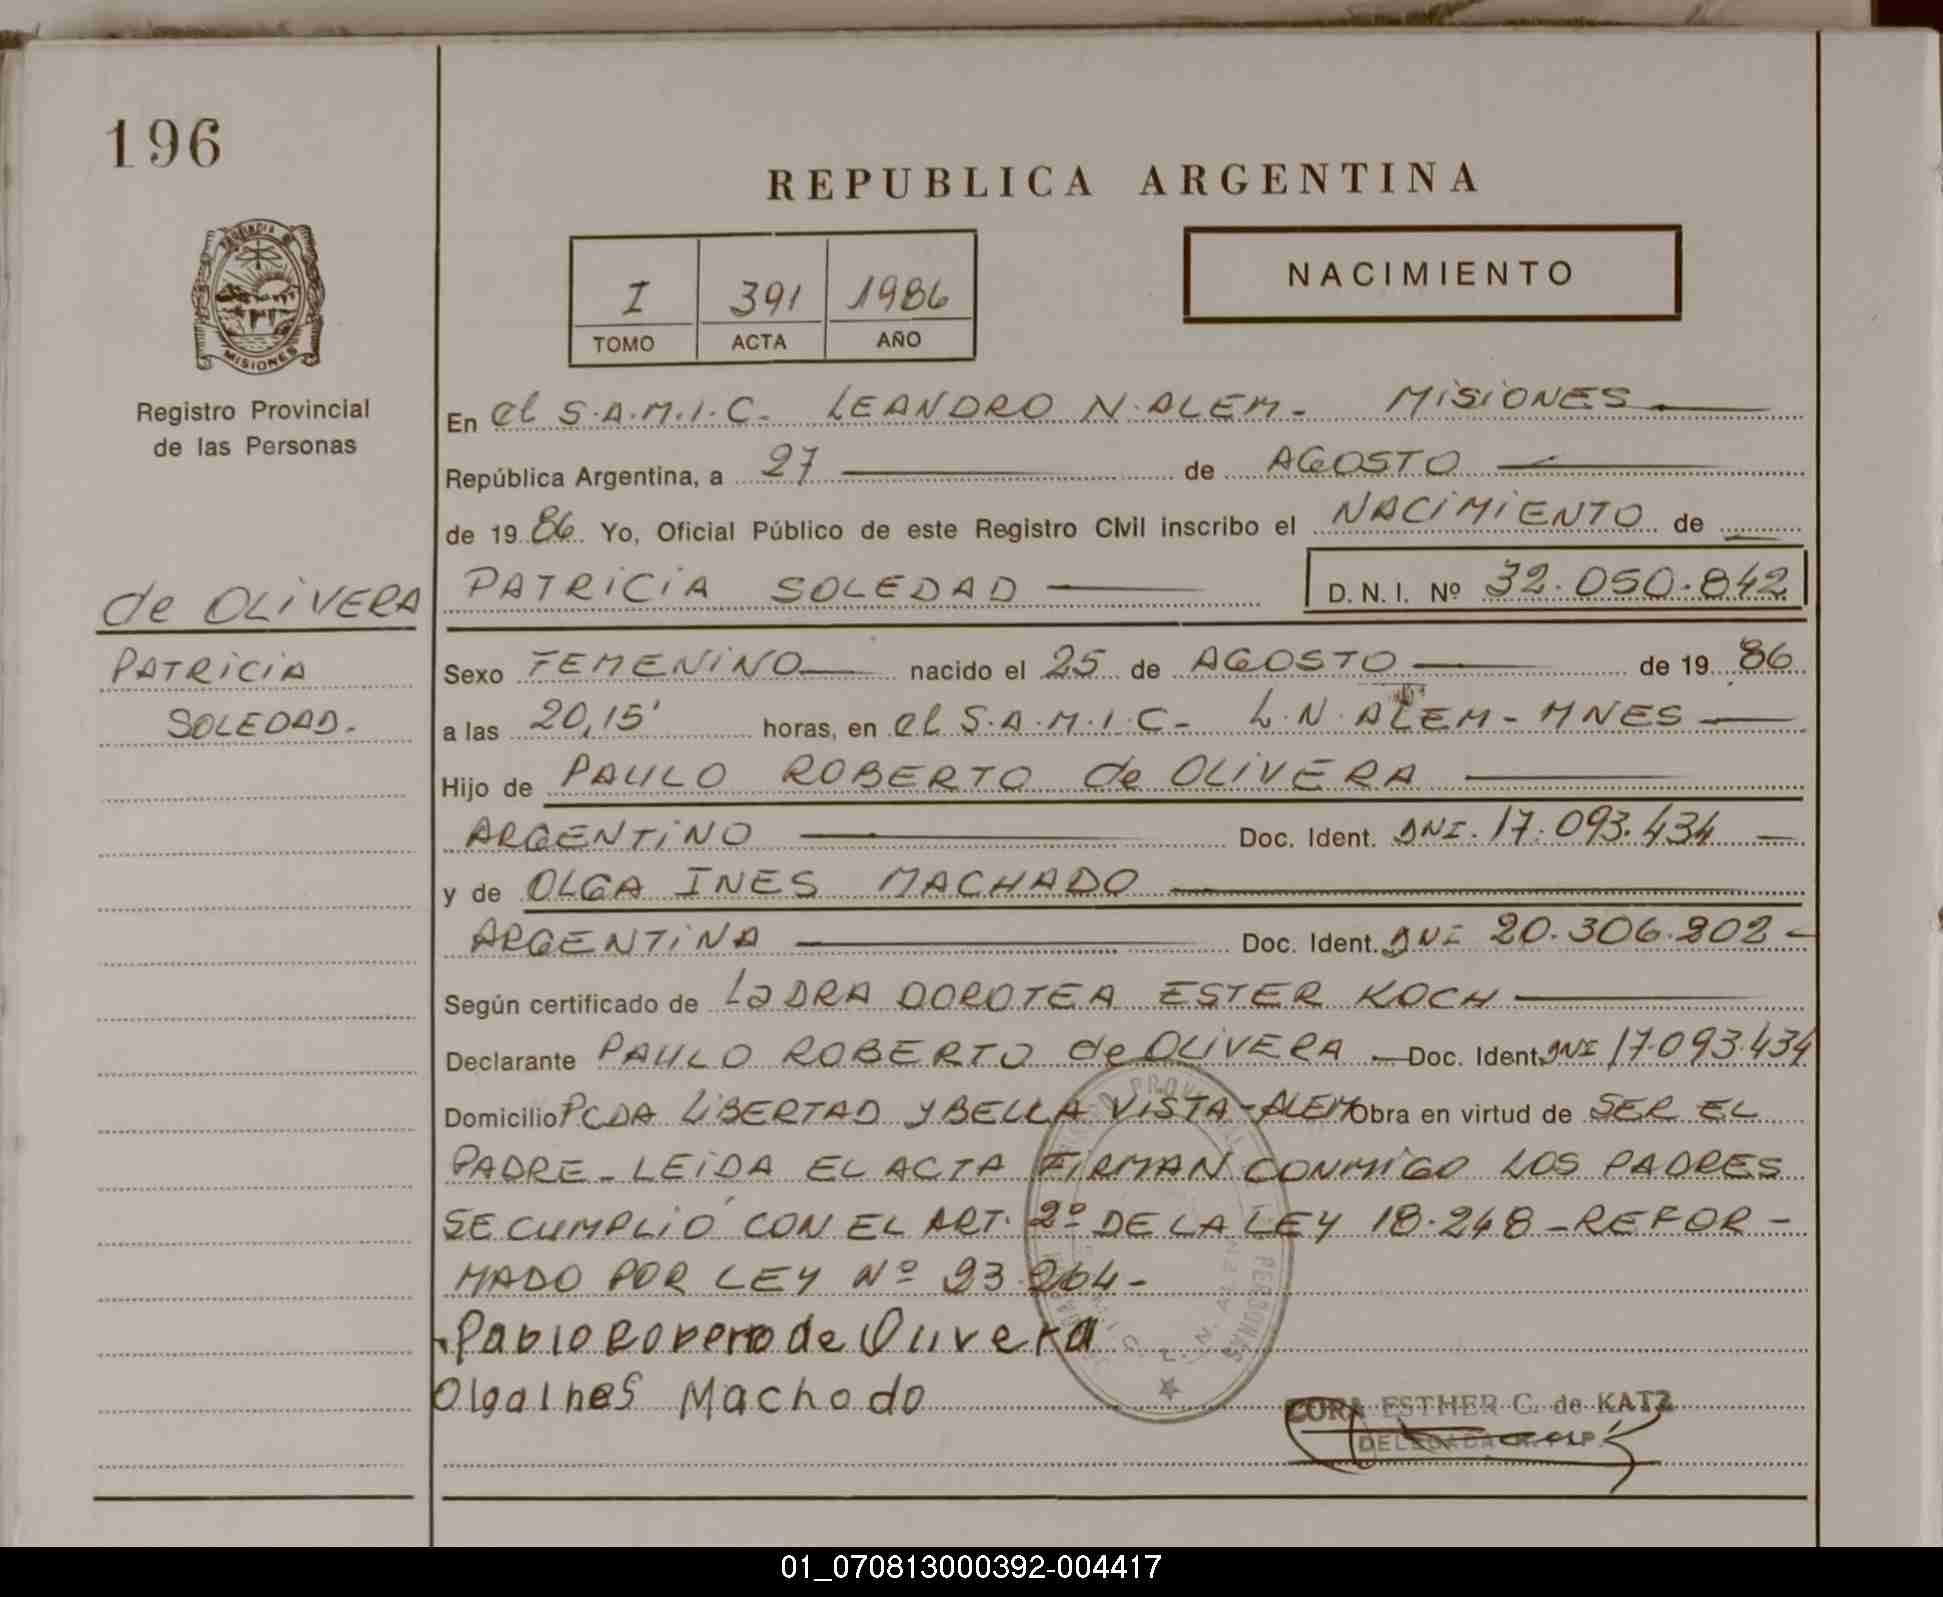 196
REPUBLICA ARGENTINA
PROVINCIA DE
MISIONES
Registro Provincial
de las Personas
I 391 1986
TOMO ACTA AÑO
NACIMIENTO
En el S.A.M.I.C. LEANDRO N. ALEM - MISIONES
República Argentina, a 27 de AGOSTO
de 19 86 Yo, Oficial Público de este Registro Civil inscribo el NACIMIENTO de
de OLIVERA
PATRICIA SOLEDAD D. N. I. Nº 32.050.842
PATRICIA
SOLEDAD.
Sexo FEMENINO nacido el 25 de AGOSTO de 19 86
a las 20,15' horas, en el S.A.M.I.C - L.N. ALEM - MNES
Hijo de PAULO ROBERTO de OLIVERA
ARGENTINO Doc. Ident. DNI. 17.093.434
y de OLGA INES MACHADO
ARGENTINA Doc. Ident. DNI 20.306.202 -
Según certificado de La DRA DOROTEA ESTER KOCH
Declarante PAULO ROBERTO de OLIVERA - Doc. Ident. DNI 17.093.434
Domicilio PCDA LIBERTAD Y BELLA VISTA - ALEM Obra en virtud de SER EL
PADRE - LEIDA EL ACTA FIRMAN CONMIGO LOS PADRES
SE CUMPLIÓ CON EL ART. 2º DE LA LEY 18.248 - REFOR -
MADO POR LEY Nº 23.264 -
Pablo Roberto de Olivera
Olga Ines Machado
CORA ESTHER G. de KATZ
DELEGADA
01_070813000392-004417